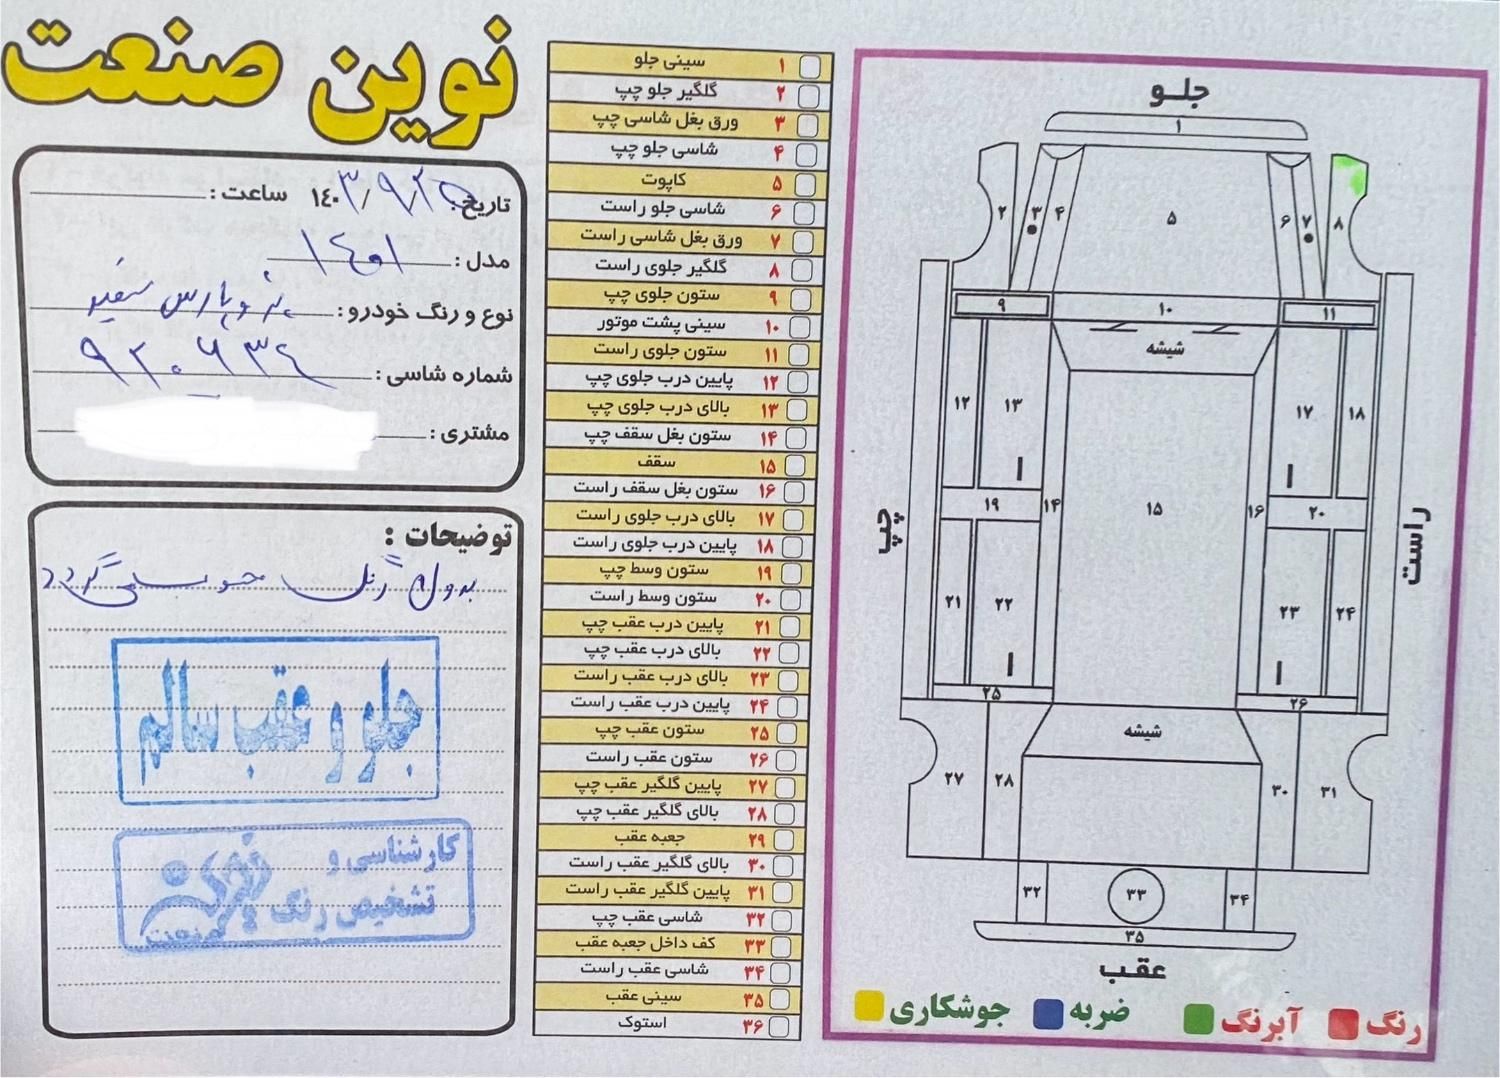 نوین صنعت
تاریخ: ۱۴۰۳/۹/۲۵ ساعت:
مدل: ۱۴۰۱
نوع و رنگ خودرو: پژو پارس سفید
شماره شاسی: ۹۲۰۷۳۴
مشتری:
توضیحات:
بدون رنگ
جلو و عقب سالم
کارشناسی و
تشخیص رنگ
نوین
صنعت
۱ سینی جلو
۲ گلگیر جلو چپ
۳ ورق بغل شاسی چپ
۴ شاسی جلو چپ
۵ کاپوت
۶ شاسی جلو راست
۷ ورق بغل شاسی راست
۸ گلگیر جلوی راست
۹ ستون جلوی چپ
۱۰ سینی پشت موتور
۱۱ ستون جلوی راست
۱۲ پایین درب جلوی چپ
۱۳ بالای درب جلوی چپ
۱۴ ستون بغل سقف چپ
۱۵ سقف
۱۶ ستون بغل سقف راست
۱۷ بالای درب جلوی راست
۱۸ پایین درب جلوی راست
۱۹ ستون وسط چپ
۲۰ ستون وسط راست
۲۱ پایین درب عقب چپ
۲۲ بالای درب عقب چپ
۲۳ بالای درب عقب راست
۲۴ پایین درب عقب راست
۲۵ ستون عقب چپ
۲۶ ستون عقب راست
۲۷ پایین گلگیر عقب چپ
۲۸ بالای گلگیر عقب چپ
۲۹ جعبه عقب
۳۰ بالای گلگیر عقب راست
۳۱ پایین گلگیر عقب راست
۳۲ شاسی عقب چپ
۳۳ کف داخل جعبه عقب
۳۴ شاسی عقب راست
۳۵ سینی عقب
۳۶ استوک
جلو
۱
۲ ۳ ۴ ۵ ۶ ۷ ۸
۹ ۱۰ ۱۱
شیشه
۱۲ ۱۳ ۱۷ ۱۸
چپ ۱۹ ۱۴ ۱۵ ۱۶ ۲۰ راست
۲۱ ۲۲ ۲۳ ۲۴
۲۵ ۲۶
شیشه
۲۷ ۲۸ ۳۰ ۳۱
۳۲ ۳۳ ۳۴
۳۵
عقب
رنگ آبرنگ ضربه جوشکاری